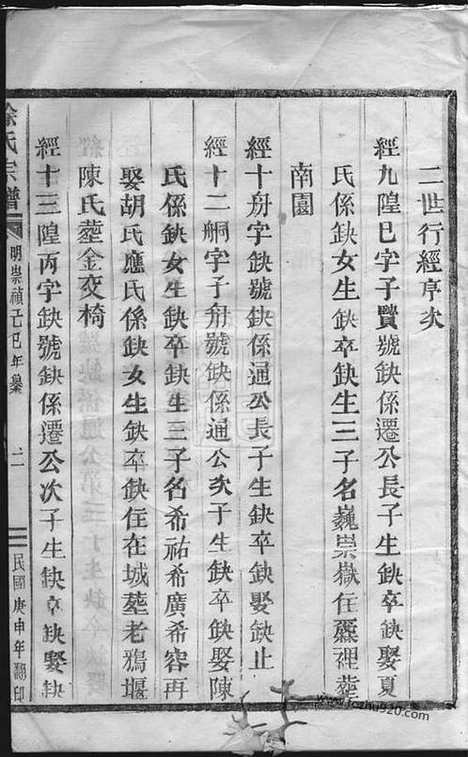 二世行經亨次
經九隍巳字子賢號缺係遷公長子生缺卒缺娶夏
氏係缺女生缺卒缺生三子名巍崇嶽住麻裡塟
南園
經十舟字缺號缺係通公長子生缺卒缺娶缺止
經十二舸字子舟號缺係通公次子生缺卒缺娶陳
氏係缺女生缺卒缺生三子名希祐希廣希容再
娶胡氏應氏係缺女生缺卒缺住在城塟老鴉堰
陳氏塟金交椅
經十三隍丙字缺號缺係遷公次子生缺卒缺娶缺
徐氏宗譜
明崇禎己巳年纂
二
民國庚申年翻印
www.jiazhu920.com